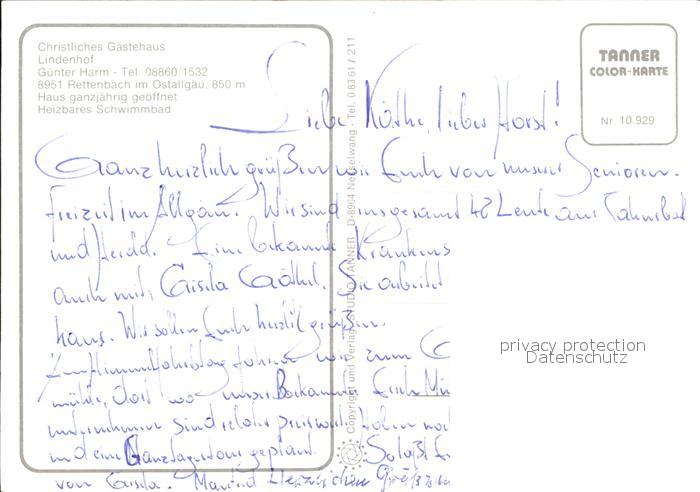 Christliches Gästehaus
Lindenhof
Günter Harm - Tel. 08860/1532
8951 Rettenbach im Ostallgäu, 850 m
Haus ganzjährig geöffnet
Heizbares Schwimmbad
TANNER
COLOR-KARTE
Nr. 10.929
Copyright und Verlag STUDIO TANNER D-8964 Nesselwang - Tel. 0 83 61 / 211
Liebe Käthe, lieber Horst!
Ganz herzlich grüßen wir Euch von unserer Senioren-
freizeit im Allgäu. Wir sind insgesamt 42 Leute aus
und Heide. Eine bekannte Krankens
auch mit, Gisela Sie arbeitet
haus. Wir sollen Euch herzlich grüßen.
wir zum
mühle, dort wo unser Bekannter Erich
unternehmen sind sehr preiswert. Haben
und eine Ganztagestour geplant.
von Gisela. Manfred Herzlichen Grüßen
privacy protection
Datenschutz